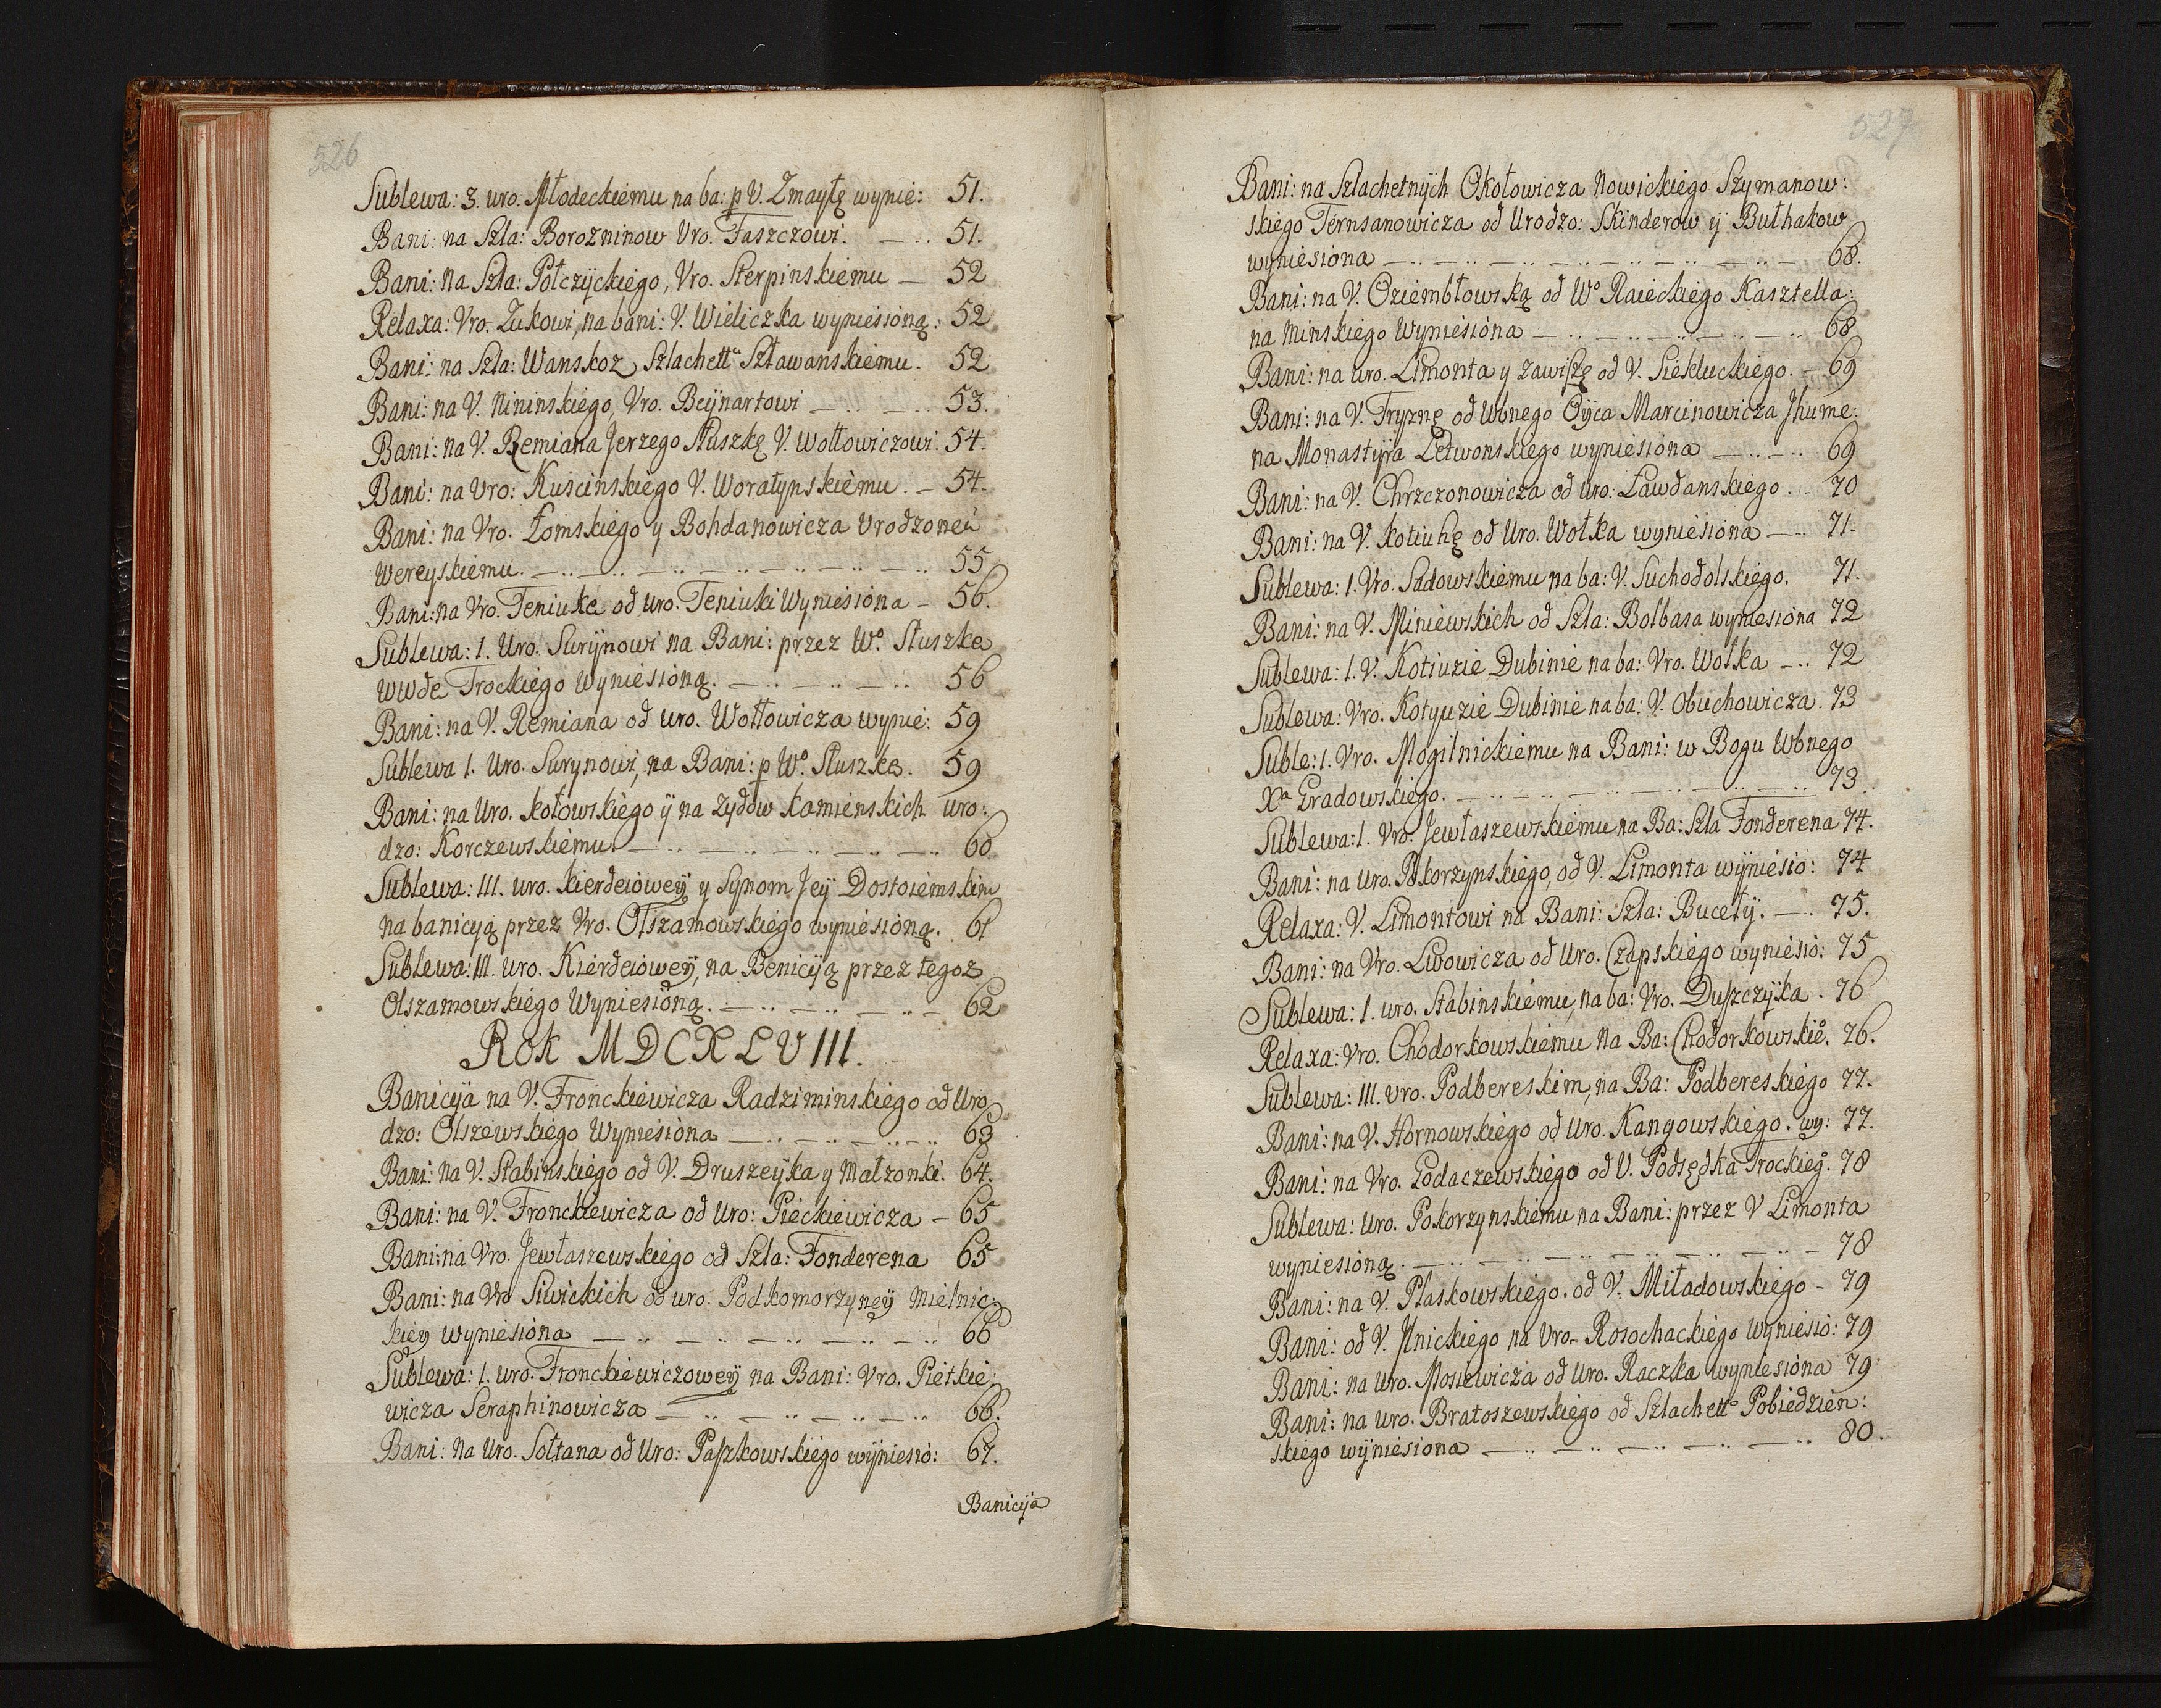 526
Sublewa: 3. uro. Młodeckiemu na ba: p V. Zmaytę wynie: 51.
Bani: na Szla: Borozninow Vro. Faszczowi. — .. 51.
Bani: na Szla: Połczyckiego, Vro. Sterpinskiemu — 52
Relaxa: Vro. Zukowi, na bani: V. Wieliczka wyniesioną: 52
Bani: na Szla: Wanskoz Szlachett Szławanskiemu. 52
Bani: na V. Nininskiego, Vro. Beÿnartowi — .. — .. 53.
Bani: na V. Remiana Jerzego Słuszkę V. Wołłowiczowi. 54.
Bani: na Vro: Kuscinskiego V. Woratynskiemu. — 54.
Bani: na Vro. Łomskiego y Bohdanowicza Vrodzone
Wereyskiemu. — .. — .. — .. — .. — .. — .. 55
Bani: na Vro. Teniuka od uro. Teniuki Wyniesiona — 56.
Sublewa: 1. Uro. Surÿnowi na Bani: przez Wo. Słuszke
wwde Trockiego Wyniesioną. — .. — .. — .. 56
Bani: na V. Remiana od uro. Wołłowicza wynie: 59
Sublewa 1. Uro. Surynowi, na Bani: p Wo. Słuszke. 59
Bani: na Uro. Kołowskiego ÿ na Zydow Kamienskich uro:
dzo: Korczewskiemu. — .. — .. — .. — .. — 60
Sublewa: III. uro. Kierdeiowey y Synom Jeÿ Dostoiemskim
na banicyą przez Vro. Olszamowskiego wyniesioną. 61
Sublewa: III. uro. Kierdeiowey, na Benicÿą przez tegoz
Olszamowskiego Wyniesioną. — .. — .. — .. — 62
Rok MDCXLVIII.
Banicÿa na V. Fronckiewicza Radziminskiego od Uro
dzo: Olszewskiego Wyniesiona — .. — .. — .. 63
Bani: na V. Stabinskiego od V. Druszeÿka y Małzonki. 64.
Bani: na V. Fronckiewicza od Uro: Pieckiewicza — 65
Bani: na Vro. Jewłaszewskiego od Szla: Fonderena 65
Bani: na Vro Siwickich od uro. Podkomorzyneÿ Mielnic:
kiey Wyniesiona — .. — .. — .. — .. — .. 66
Sublewa: 1. uro. Fronckiewiczoweÿ na Bani: Vro. Pietkie:
wicza Seraphinowicza — .. — .. — .. — .. 66.
Bani: na Uro. Sołtana od Uro: Paszkowskiego wÿniesio: 67.
Banicÿa
527
Bani: na Szlachetnÿch Okołowicza Nowickiego Szymanow:
skiego Ternsanowicza od Urodzo: Skinderow ÿ Buthakow
wyniesiona — .. — .. — .. — .. — .. — .. — .. — 68.
Bani: na V. Oziembłowską od Wo Raieckiego Kasztella:
na Minskiego Wyniesiona — .. — .. — .. — .. — .. 68
Bani: na uro. Limonta y Zawiszę od V. Siekluckiego. — 69
Bani: na V. Fryznę od Wbnego Oÿca Marcinowicza Jhume:
na Monastÿra Cetwonskiego wyniesiona — .. — .. 69
Bani: na V. Chrzczonowicza od uro: Ławdanskiego. .. 70
Bani: na V. Kotiuhę od Uro. Wołka wyniesiona — .. 71.
Sublewa: 1. Vro. Sadowskiemu na ba: V. Suchodolskiego. 71.
Bani: na V. Miniewskich od Szla: Bolbasa wyniesiona 72
Sublewa: 1. V. Kotiuzie Dubinie na ba: Vro. Wołka — .. 72
Sublewa: Vro. Kotyuzie Dubinie na ba: V. Obuchowicza. 73
Suble: 1. Vro. Mogilnickiemu na Bani: w Bogu Wbnego
Xa Gradowskiego. — .. — .. — .. — .. — .. — .. 73.
Sublewa: 1. Vro. Jewłaszewskiemu na Ba: Szla Fonderena 74.
Bani: na uro. Pokorzynskiego, od V. Limonta wÿniesio: 74
Relaxa: V. Limontowi na Bani: Szla: Bucełÿ. — .. 75.
Bani: na Vro. Lwowicza od Uro. Czapskiego wyniesio: 75
Sublewa: 1. uro. Stabinskiemu, na ba: Vro. Duszczÿka. 76
Relaxa: Vro. Chodorkowskiemu Na Ba: Chodorkowskieo. 76.
Sublewa: III. Vro. Podbereskim, na Ba: Podbereskiego 77.
Bani: na V. Hornowskiego od Uro. Kangowskiego. wy: 77.
Bani: na Vro. Godaczewskiego od V. Podsędka Trockiego. 78
Sublewa: Uro. Pokorzynskiemu na Bani: przez V Limonta
wyniesioną. — .. — .. — .. — .. — .. — .. — 78
Bani: na V. Płaskowskiego. od V. Miładowskiego — 79
Bani: od V. Ilnickiego na Vro. Rosochackiego Wyniesio: 79
Bani: na Uro. Mosiewicza od Uro. Raczka wyniesiona 79
Bani: na uro. Bratoszewskiego od Szlachetto Pobiedzien:
skiego wÿniesiona — .. — .. — .. — .. — .. 80.